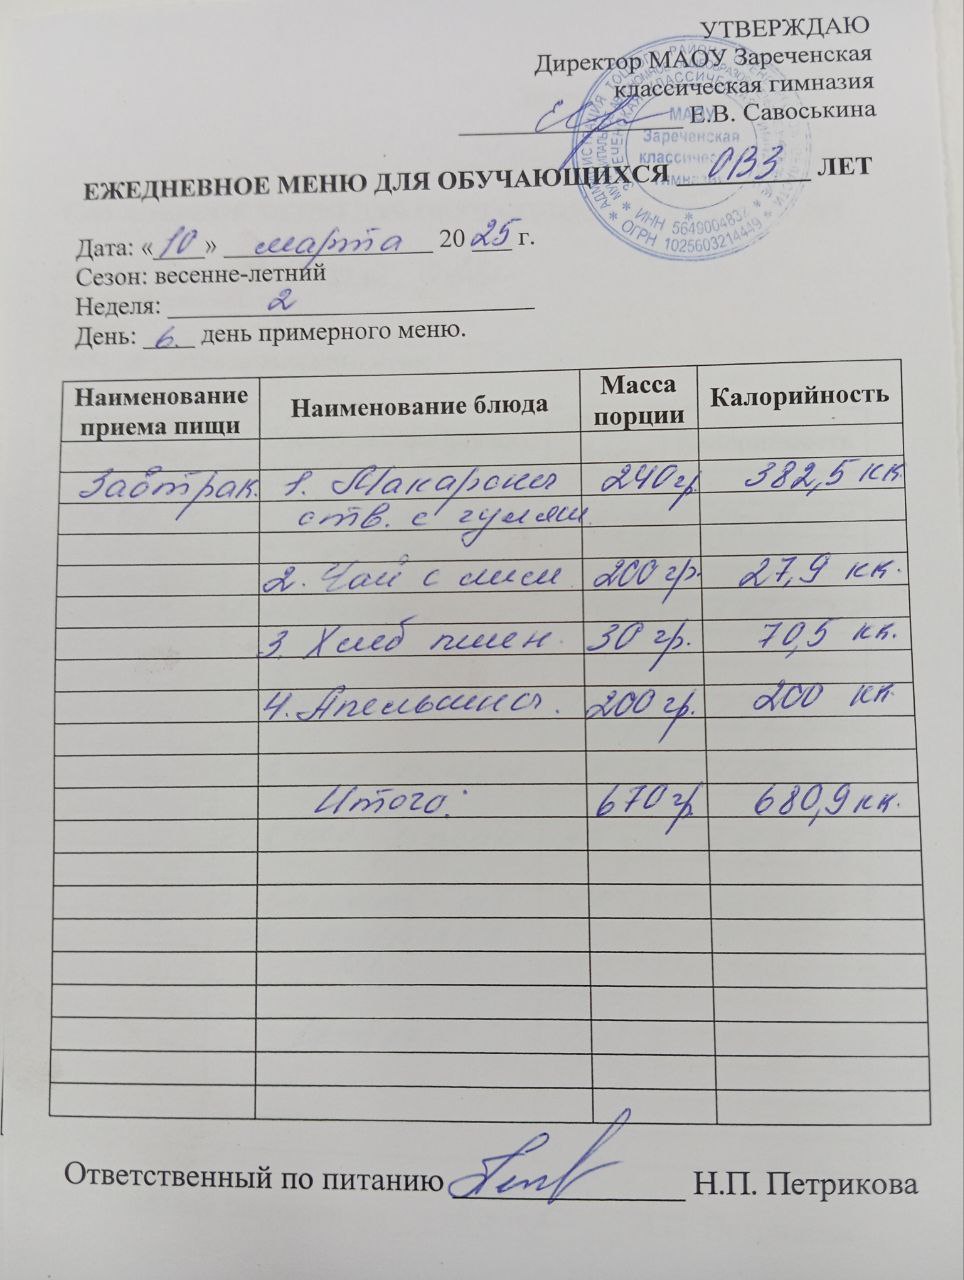 УТВЕРЖДАЮ
Директор МАОУ Зареченская
классическая гимназия
Е.В. Савоськина
МАОУ
Зареченская
ИНН 5649004832
ОГРН 1025603214449
ЕЖЕДНЕВНОЕ МЕНЮ ДЛЯ ОБУЧАЮЩИХСЯ ОВЗ ЛЕТ
Дата: «10» марта 2025 г.
Сезон: весенне-летний
Неделя: 2
День: 6. день примерного меню.
Наименование приема пищи Наименование блюда Масса порции Калорийность
Завтрак. 1. Макароны 240гр 382,5 кк.
отв. с гуляш.
2. Чай с лим 200 гр. 27,9 кк.
3. Хлеб пшен. 30 гр. 70,5 кк.
4. Апельсины. 200 гр. 200 кк
Итого: 670 гр 680,9 кк.
Ответственный по питанию Н.П. Петрикова